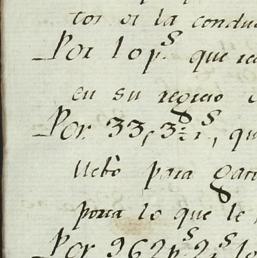 tos di la condu
Por 10 p.s que re
en su regreso
Por 33, 3 r.s, qu
llebò para gas
para lo que le
Por 962 p.s 2 r.s lo